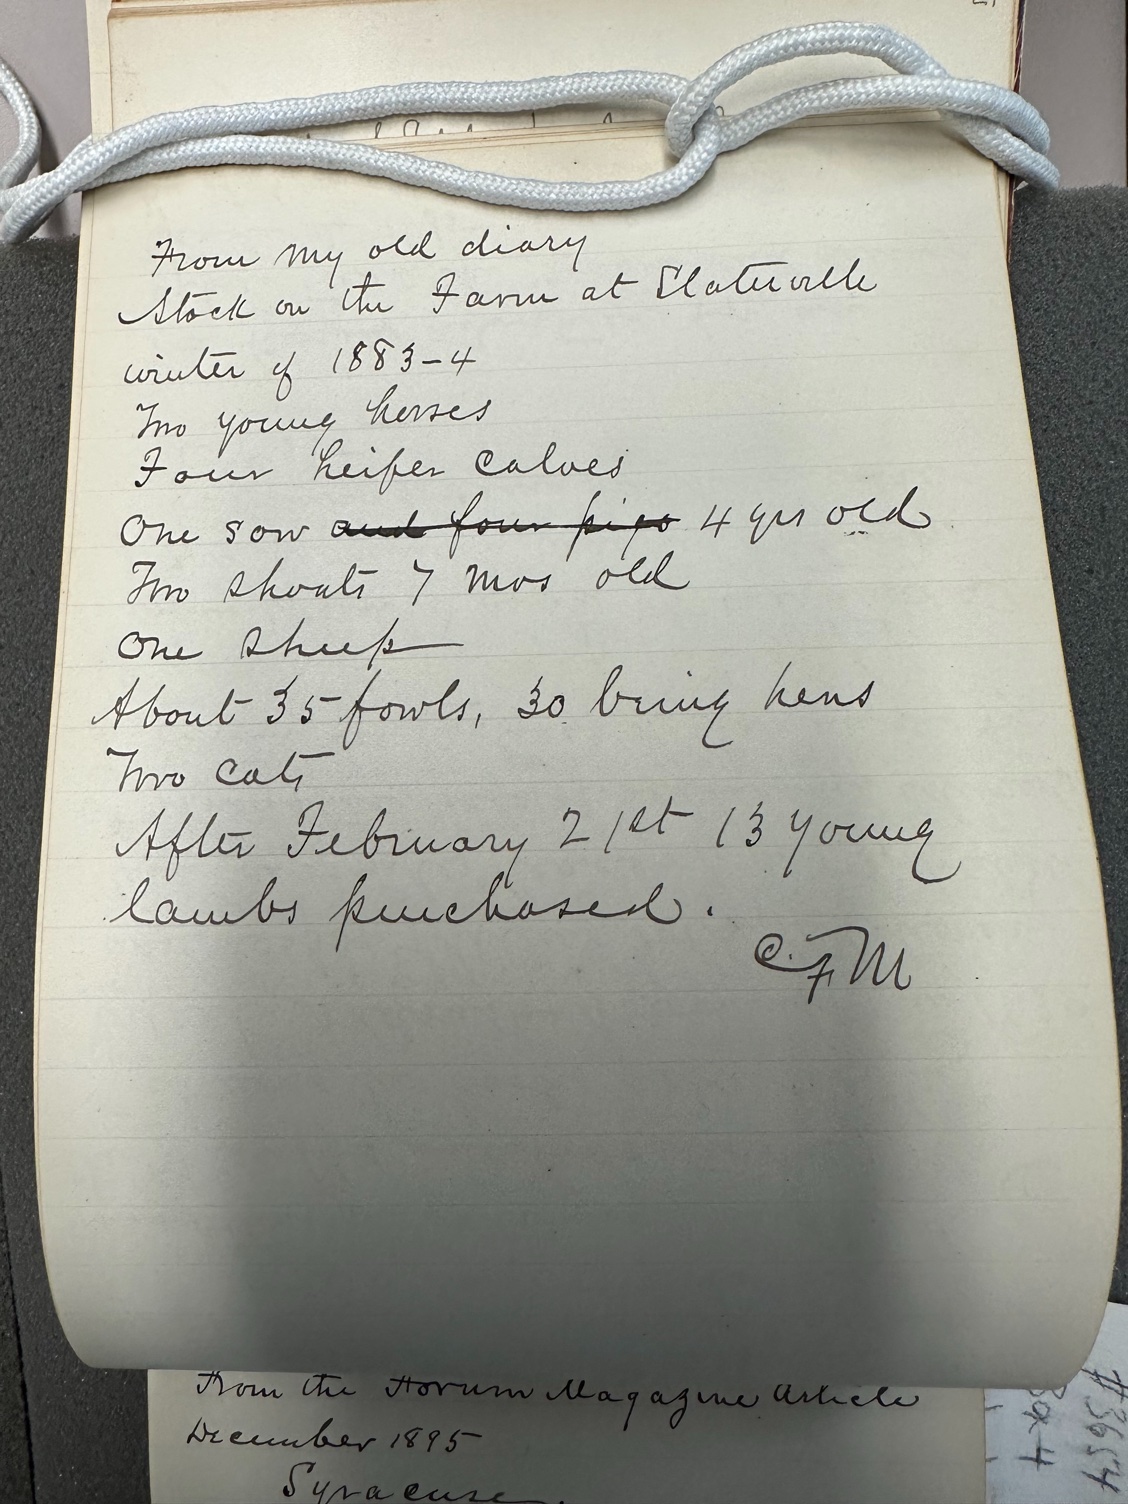 From my old diary
Stock on the Farm at Slaterville
winter of 1883-4
Two young horses
Four heifer calves
One sow and four pigs 4 yrs old
Two shoats 7 mos old
One sheep
About 35 fowls, 30 being hens
Two cats
After February 21st 13 young
lambs purchased.
C. F. M
From the Forum Magazine Article
December 1895
Syracuse
#3654
Box 4